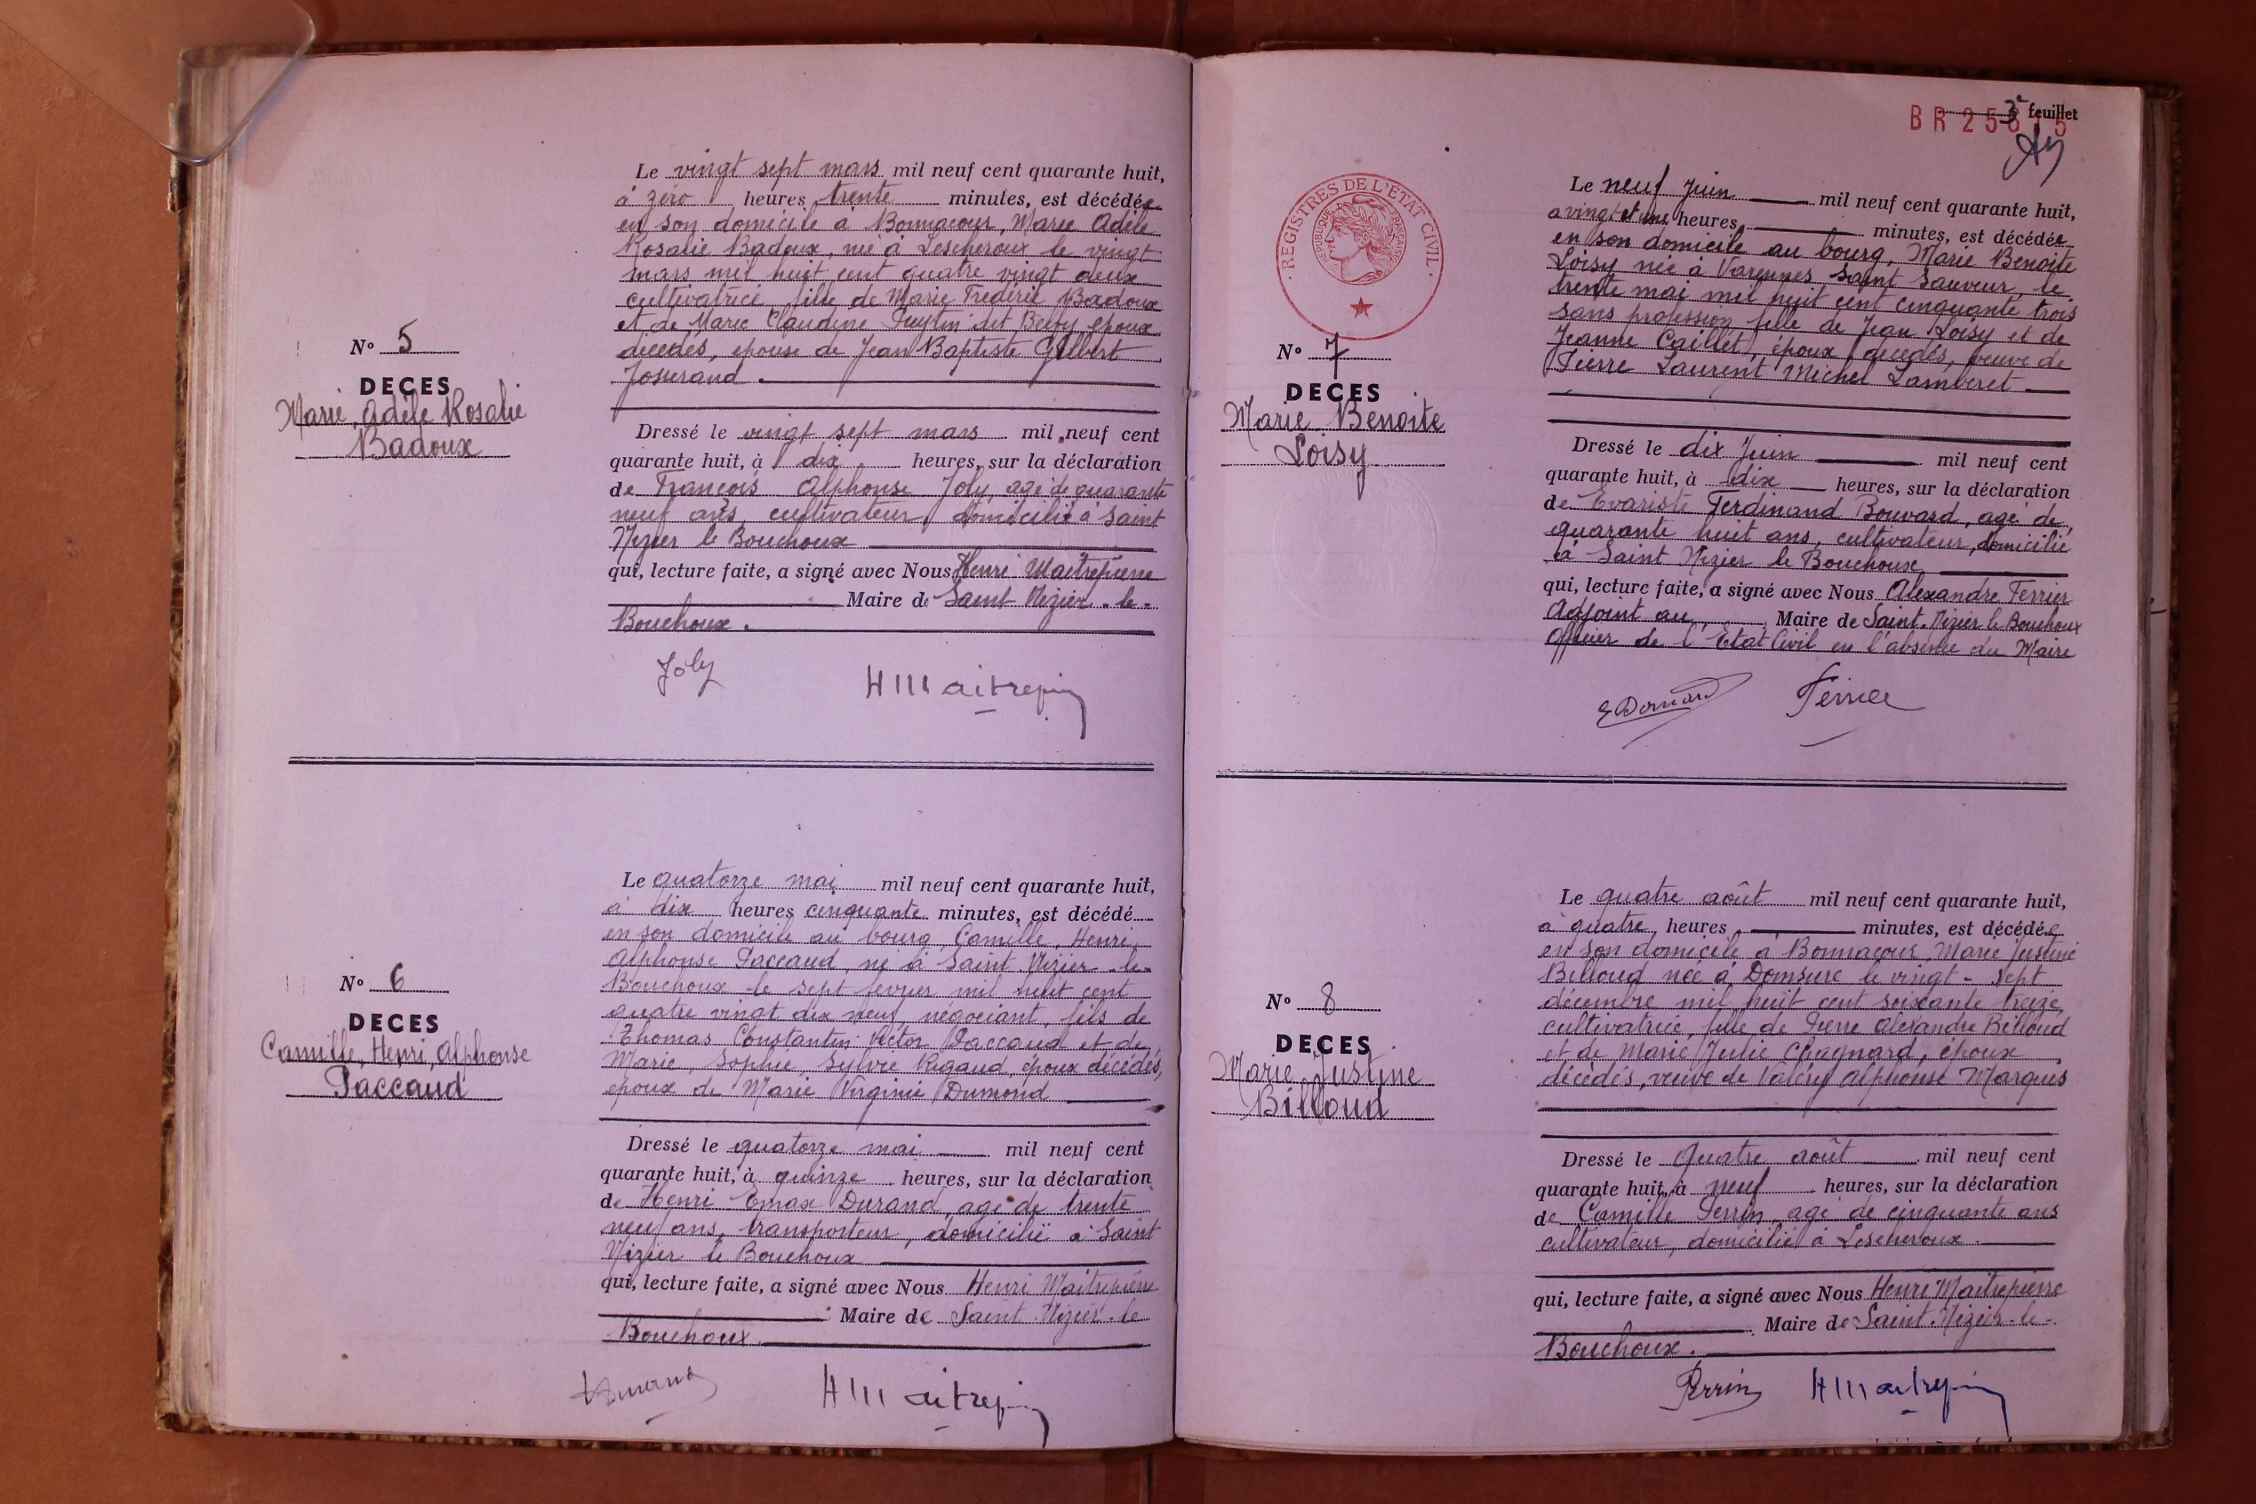 Le vingt sept mars mil neuf cent quarante huit,
à zéro heures trente minutes, est décédée
en son domicile à Bonnacour, Marie Adèle
Rosalie Badoux, née à Lescheroux le vingt
mars mil huit cent quatre vingt deux
cultivatrice, fille de Marie Frédéric Badoux
et de Marie Claudine dit époux
décédés, épouse de Jean Baptiste Gilbert
Josserand.
N° 5
DECES
Marie Adèle Rosalie
Badoux
Dressé le vingt sept mars mil neuf cent
quarante huit, à dix heures, sur la déclaration
de François Alphonse Joly, agé de quarante
neuf ans, cultivateur, domicilié à Saint
Nizier le Bouchoux
qui, lecture faite, a signé avec Nous Henri Maitrepierre
Maire de Saint Nizier-le-
Bouchoux.
Joly HMaitrepierre
Le quatorze mai mil neuf cent quarante huit,
à dix heures cinquante minutes, est décédé
en son domicile au bourg, Camille, Henri,
Alphonse Paccaud, né à Saint Nizier-le-
Bouchoux le sept février mil huit cent
quatre vingt dix neuf, négociant, fils de
Thomas Constantin Victor Paccaud et de
Marie, Sophie, Sylvie Rigaud, époux décédés,
époux de Marie Virginie Dumond
N° 6
DECES
Camille, Henri, Alphonse
Paccaud
Dressé le quatorze mai mil neuf cent
quarante huit, à quinze heures, sur la déclaration
de Henri Durand, agé de trente
neuf ans, transporteur, domicilié à Saint
Nizier le Bouchoux
qui, lecture faite, a signé avec Nous Henri Maitrepierre
Maire de Saint-Nizier-le
Bouchoux.
Durand HMaitrepierre
3e feuillet
BR 25 15
REGISTRES DE L'ÉTAT CIVIL
RÉPUBLIQUE FRANÇAISE
Le neuf juin mil neuf cent quarante huit,
à vingt et une heures, minutes, est décédée
en son domicile au bourg, Marie Benoite
Loisy née à Varennes Saint Sauveur, le
trente mai mil huit cent cinquante trois
sans profession, fille de Jean Loisy et de
Jeanne Caillet, époux décédés, veuve de
Pierre Laurent Michel Lamberet
N° 7
DECES
Marie Benoite
Loisy
Dressé le dix Juin mil neuf cent
quarante huit, à dix heures, sur la déclaration
de Evariste Ferdinand Bouvard, agé de
quarante huit ans, cultivateur, domicilié
à Saint Nizier le Bouchoux
qui, lecture faite, a signé avec Nous Alexandre Ferrier
Adjoint au Maire de Saint-Nizier le Bouchoux
Officier de l'Etat Civil en l'absence du Maire
Ferrier
Le quatre août mil neuf cent quarante huit,
à quatre heures, minutes, est décédée
en son domicile à Bonnacour, Marie Justine
Billoud née à Domsure le vingt-sept
décembre mil huit cent soixante treize,
cultivatrice, fille de Pierre Alexandre Billoud
et de Marie Julie Chagnard, époux
décédés, veuve de Valéry Alphonse Marquis
N° 8
DECES
Marie Justine
Billoud
Dressé le quatre août mil neuf cent
quarante huit, à neuf heures, sur la déclaration
de Camille Perrin, agé de cinquante ans
cultivateur, domicilié à Lescheroux.
qui, lecture faite, a signé avec Nous Henri Maitrepierre
Maire de Saint-Nizier-le-
Bouchoux.
Perrin HMaitrepierre